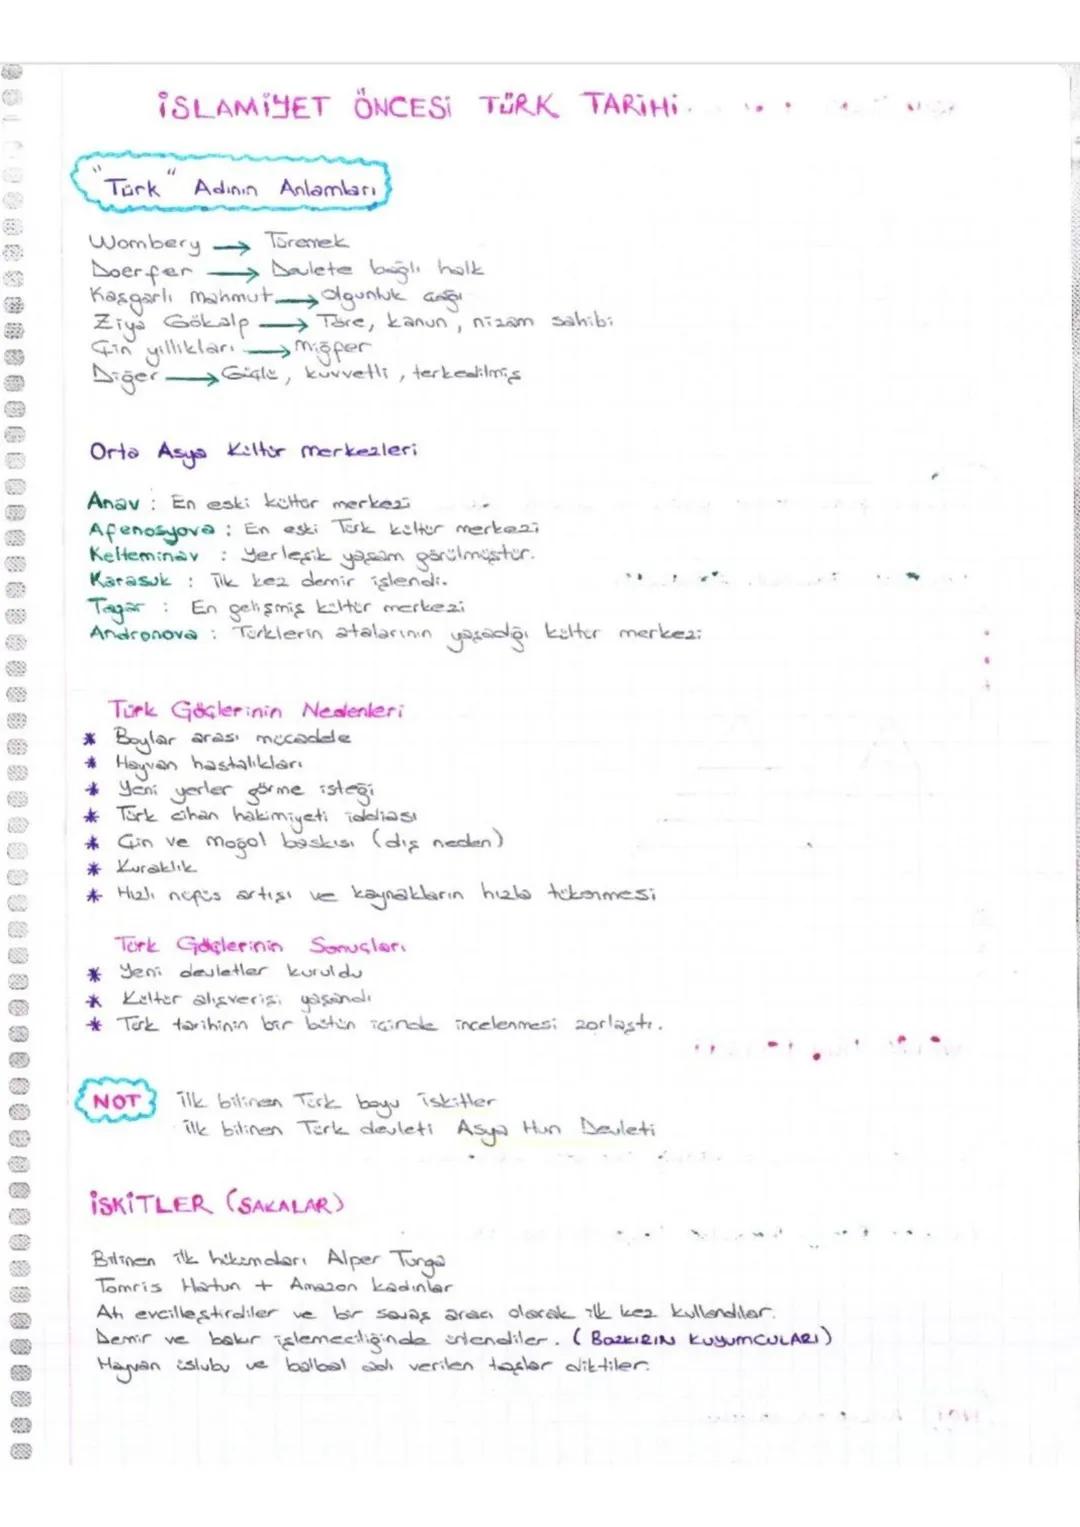 İSLAMİYET ÖNCESİ TÜRK TARİHİ
"Türk" Adının Anlamları
Wombery → Türemek
Doerfer → Devlete bağlı halk
Kaşgarlı Mahmut → Olgunluk çağı
Ziya Gökalp → Töre, kanun, nizam sahibi
Çin yıllıkları → Miğfer
Diğer → Güçlü, kuvvetli, terkedilmiş
Orta Asya Kültür Merkezleri
Anav : En eski kültür merkezi
Afenosyova : En eski Türk kültür merkezi
Kelteminav : Yerleşik yaşam görülmüştür.
Karasuk : İlk kez demir işlendi.
Tagar : En gelişmiş kültür merkezi
Andronova : Türklerin atalarının yaşadığı kültür merkezi
Türk Göçlerinin Nedenleri
* Boylar arası mücadele
* Hayvan hastalıkları
* Yeni yerler görme isteği
* Türk cihan hakimiyeti iddiası
* Çin ve Moğol baskısı (dış neden)
* Kuraklık
* Hızlı nüfus artışı ve kaynakların hızla tükenmesi
Türk Göçlerinin Sonuçları
* Yeni devletler kuruldu
* Kültür alışverişi yaşandı
* Türk tarihinin bir bütün içinde incelenmesi zorlaştı.
NOT İlk bilinen Türk boyu İskitler
İlk bilinen Türk devleti Asya Hun Devleti
İSKİTLER (SAKALAR)
Bilinen ilk hükümdarı Alper Tunga
Tomris Hatun + Amazon Kadınlar
Atı evcilleştirdiler ve bir savaş aracı olarak ilk kez kullandılar.
Demir ve bakır işlemeciliğinde ünlendiler. (BOZKIRIN KUYUMCULARI)
Hayvan üslubu ve balbal adı verilen taşlar diktiler.